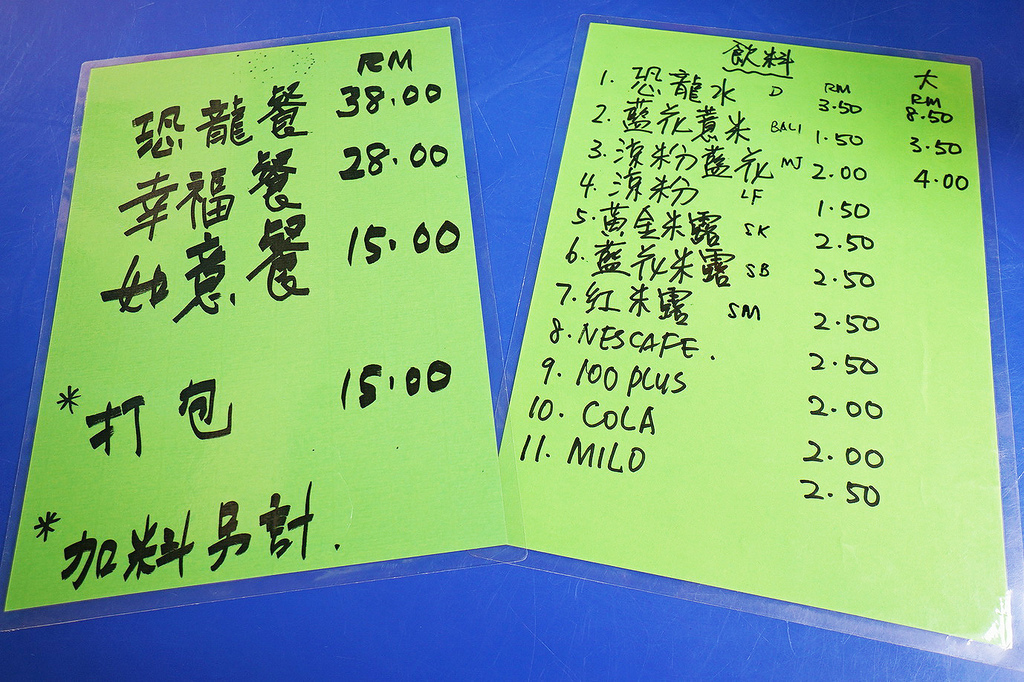 RM
恐龍餐 38.00
幸福餐 28.00
如意餐 15.00
*打包 15.00
*加料另計.
飲料
RM 大 RM
1. 恐龍水 D 3.50 8.50
2. 藍花薏米 BALI 1.50 3.50
3. 涼粉藍花 MJ 2.00 4.00
4. 涼粉 LF 1.50
5. 黃金米露 SK 2.50
6. 藍花米露 SB 2.50
7. 紅米露 SM 2.50
8. NESCAFE. 2.50
9. 100 PLUS 2.00
10. COLA 2.00
11. MILO 2.50